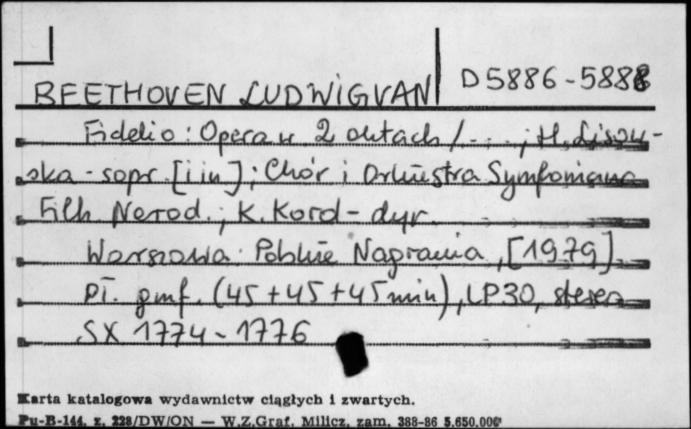 BEETHOVEN LUDWIG VAN D5886-5888
Fidelio : Opera w 2 aktach / . . . ; H. Lisow-
ska - sopr. [i in] ; Chór i Orkiestra Symfoniczna
Filh Narod. ; K. Kord - dyr.
Warszawa : Polskie Nagrania, [1979]
Pł. gmf. (45 + 45 + 45 min), LP30, stereo
SX 1774 - 1776
Karta katalogowa wydawnictw ciągłych i zwartych.
Pu-B-144, z. 228/DW/ON — W.Z.Graf. Milicz, zam. 388-86 5.650.000